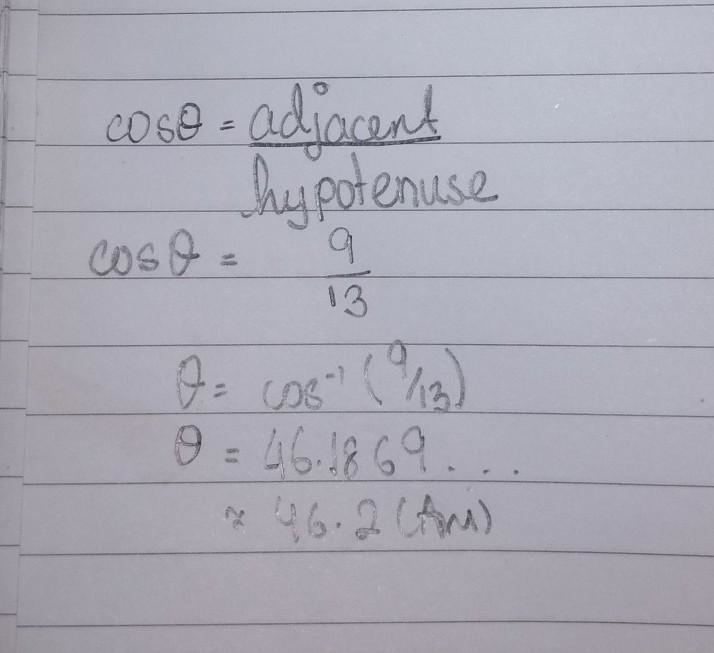 cosθ = adjacent
hypotenuse
cosθ = 9
13
θ = cos⁻¹ (9/13)
θ = 46.1869....
≈ 46.2 (Ans)